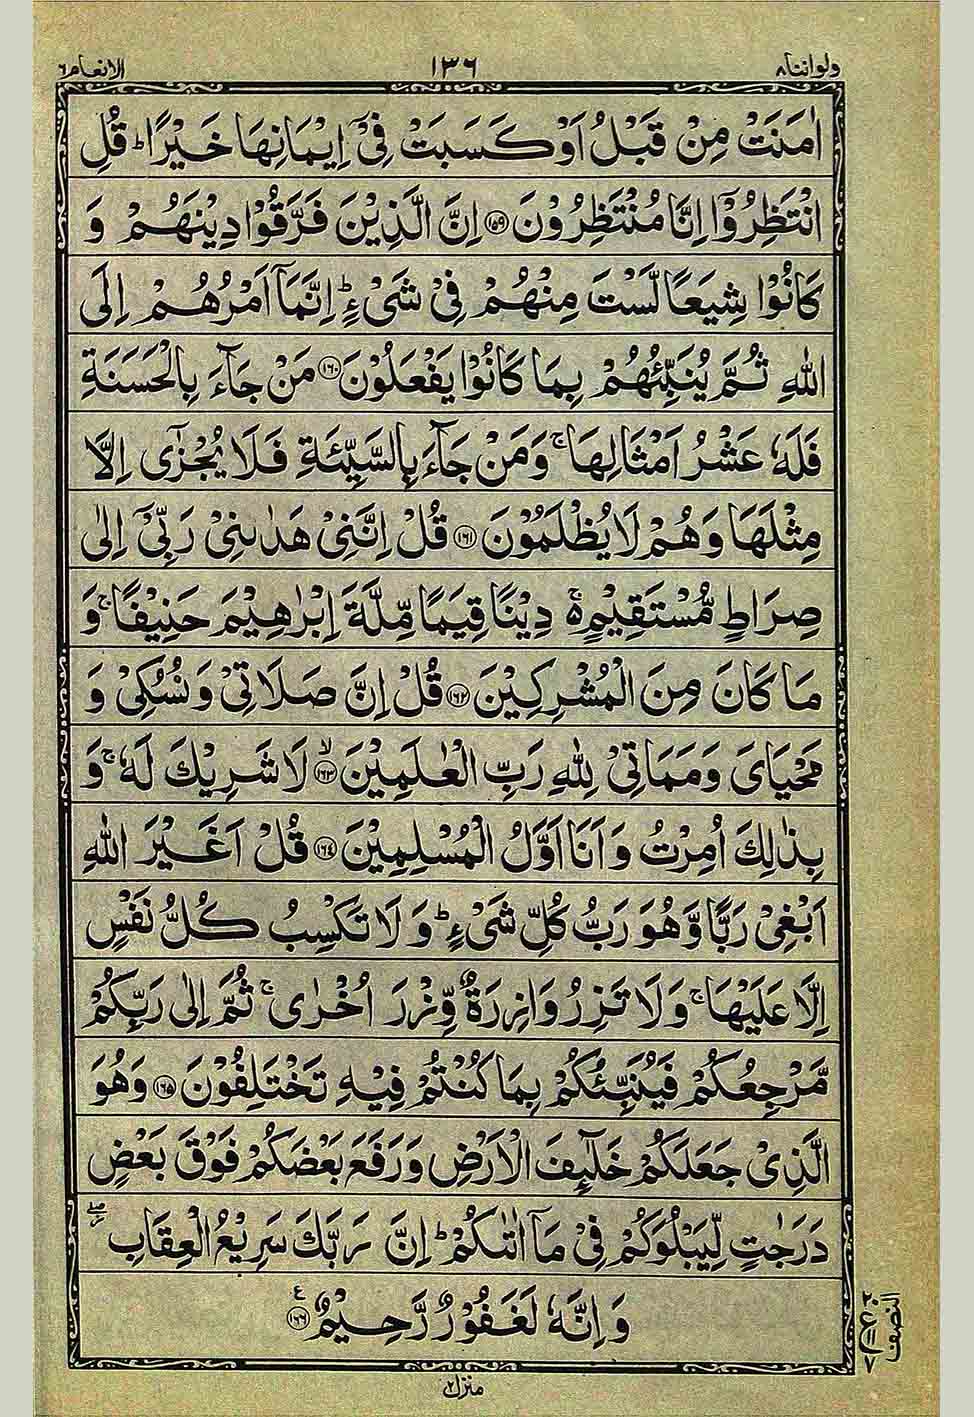 ولواننا۸ ۱۳۶ الانعام٦
اٰمَنَتْ مِنْ قَبْلُ اَوْ كَسَبَتْ فِیْۤ اِیْمَانِهَا خَیْرًا ؕ قُلِ
انْتَظِرُوْۤا اِنَّا مُنْتَظِرُوْنَ ﴿۱۵۹﴾ اِنَّ الَّذِیْنَ فَرَّقُوْا دِیْنَهُمْ وَ
كَانُوْا شِیَعًا لَّسْتَ مِنْهُمْ فِیْ شَیْءٍ ؕ اِنَّمَاۤ اَمْرُهُمْ اِلَی
اللّٰهِ ثُمَّ یُنَبِّئُهُمْ بِمَا كَانُوْا یَفْعَلُوْنَ ﴿۱۶۰﴾ مَنْ جَآءَ بِالْحَسَنَةِ
فَلَهٗ عَشْرُ اَمْثَالِهَا ۚ وَمَنْ جَآءَ بِالسَّیِّئَةِ فَلَا یُجْزٰۤی اِلَّا
مِثْلَهَا وَهُمْ لَا یُظْلَمُوْنَ ﴿۱۶۱﴾ قُلْ اِنَّنِیْ هَدٰىنِیْ رَبِّیْۤ اِلٰی
صِرَاطٍ مُّسْتَقِیْمٍ ۚ دِیْنًا قِیَمًا مِّلَّةَ اِبْرٰهِیْمَ حَنِیْفًا ۚ وَ
مَا كَانَ مِنَ الْمُشْرِكِیْنَ ﴿۱۶۲﴾ قُلْ اِنَّ صَلَاتِیْ وَنُسُكِیْ وَ
مَحْیَایَ وَمَمَاتِیْ لِلّٰهِ رَبِّ الْعٰلَمِیْنَ ﴿۱۶۳﴾ۙ لَا شَرِیْكَ لَهٗ ۚ وَ
بِذٰلِكَ اُمِرْتُ وَاَنَا اَوَّلُ الْمُسْلِمِیْنَ ﴿۱۶۴﴾ قُلْ اَغَیْرَ اللّٰهِ
اَبْغِیْ رَبًّا وَّهُوَ رَبُّ كُلِّ شَیْءٍ ؕ وَلَا تَكْسِبُ كُلُّ نَفْسٍ
اِلَّا عَلَیْهَا ۚ وَلَا تَزِرُ وَازِرَةٌ وِّزْرَ اُخْرٰی ۚ ثُمَّ اِلٰی رَبِّكُمْ
مَّرْجِعُكُمْ فَیُنَبِّئُكُمْ بِمَا كُنْتُمْ فِیْهِ تَخْتَلِفُوْنَ ﴿۱۶۵﴾ وَهُوَ
الَّذِیْ جَعَلَكُمْ خَلٰٓئِفَ الْاَرْضِ وَرَفَعَ بَعْضَكُمْ فَوْقَ بَعْضٍ
دَرَجٰتٍ لِّیَبْلُوَكُمْ فِیْ مَاۤ اٰتٰىكُمْ ؕ اِنَّ رَبَّكَ سَرِیْعُ الْعِقَابِ ۖ
وَاِنَّهٗ لَغَفُوْرٌ رَّحِیْمٌ ﴿۱۶۶﴾
النصف
منزل۲